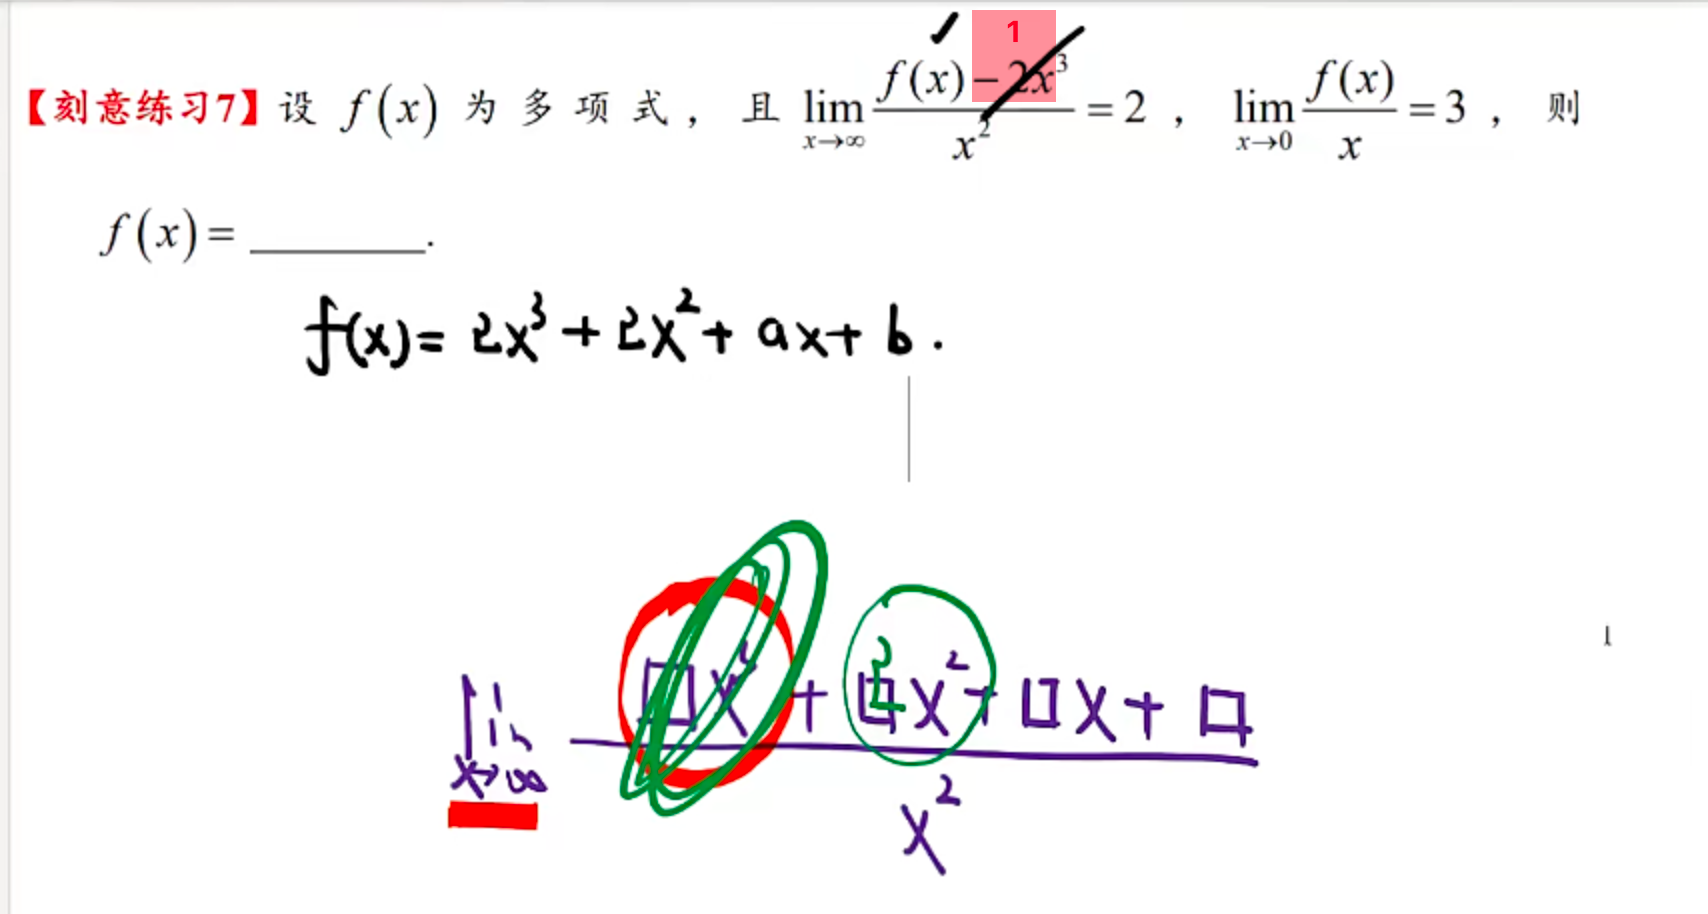 1
【刻意练习7】设 f(x) 为多项式，且 lim x→∞ (f(x)－2x³)/x² = 2，lim x→0 f(x)/x = 3，则
f(x) = ______.
f(x) = 2x³ + 2x² + ax + b.
1
lim x→∞ (□x + □x² + □x + □)/x²